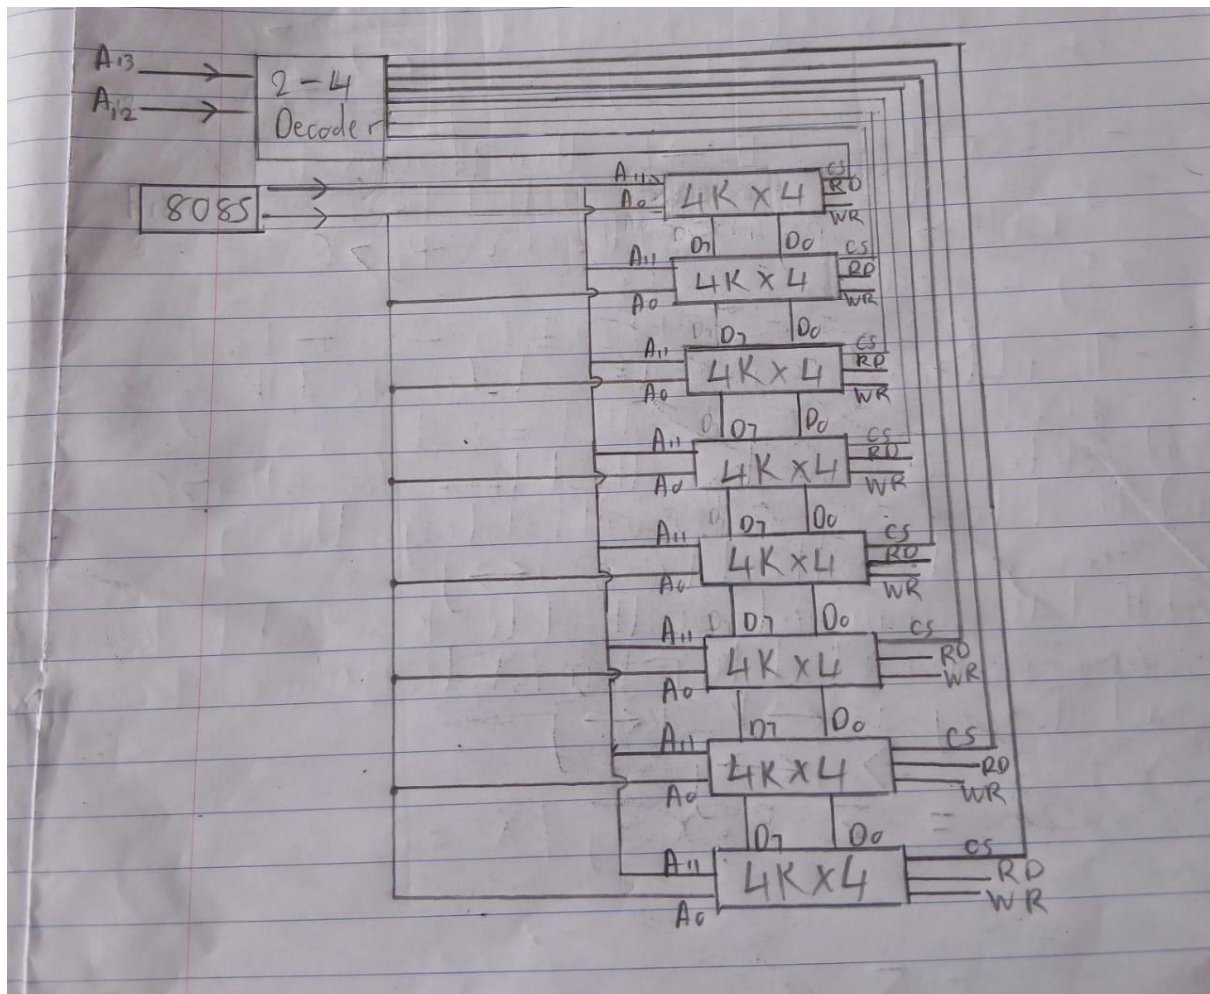 A13
A12
2-4
Decoder
8085
A11
A0
4K X 4
CS
RD
WR
D7 D0
A11
A0
4K X 4
CS
RD
WR
D7 D0
A11
A0
4K X 4
CS
RD
WR
D7 D0
A11
A0
4K X 4
CS
RD
WR
D7 D0
A11
A0
4K X 4
CS
RD
WR
D7 D0
A11
A0
4K X 4
CS
RD
WR
D7 D0
A11
A0
4K X 4
CS
RD
WR
D7 D0
A11
A0
4K X 4
CS
RD
WR